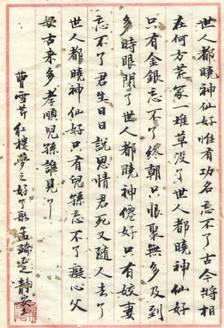 世人都曉神仙好惟有功名忘不了古今將相
在何方荒冢堆草没了世人都曉神仙好
只有金銀忘不了終朝只恨聚無多及到
多時眼閉了世人都曉神僊好只有姣妻
忘不了君生日日說恩情君死又隨人去了
世人都曉神仙好只有兒孫忘不了癡心父
母古來多孝順兒孫誰見了
曹雪芹紅樓夢之好了歌